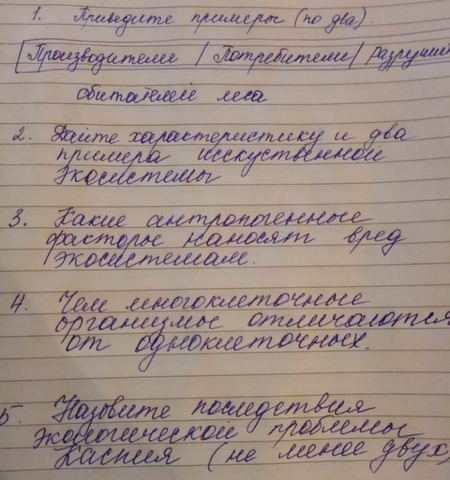 1. Приведите примеры (по два)
Производители / Потребители / разруши
обитателей леса
2. Дайте характеристику и два
примера исскуственной
экосистемы
3. Какие антропогенные
факторы наносят вред
экосистемам.
4. Чем многоклеточные
организмы отличаются
от одноклеточных.
5. Назовите последствия
экологической проблемы
Каспия (не менее двух)